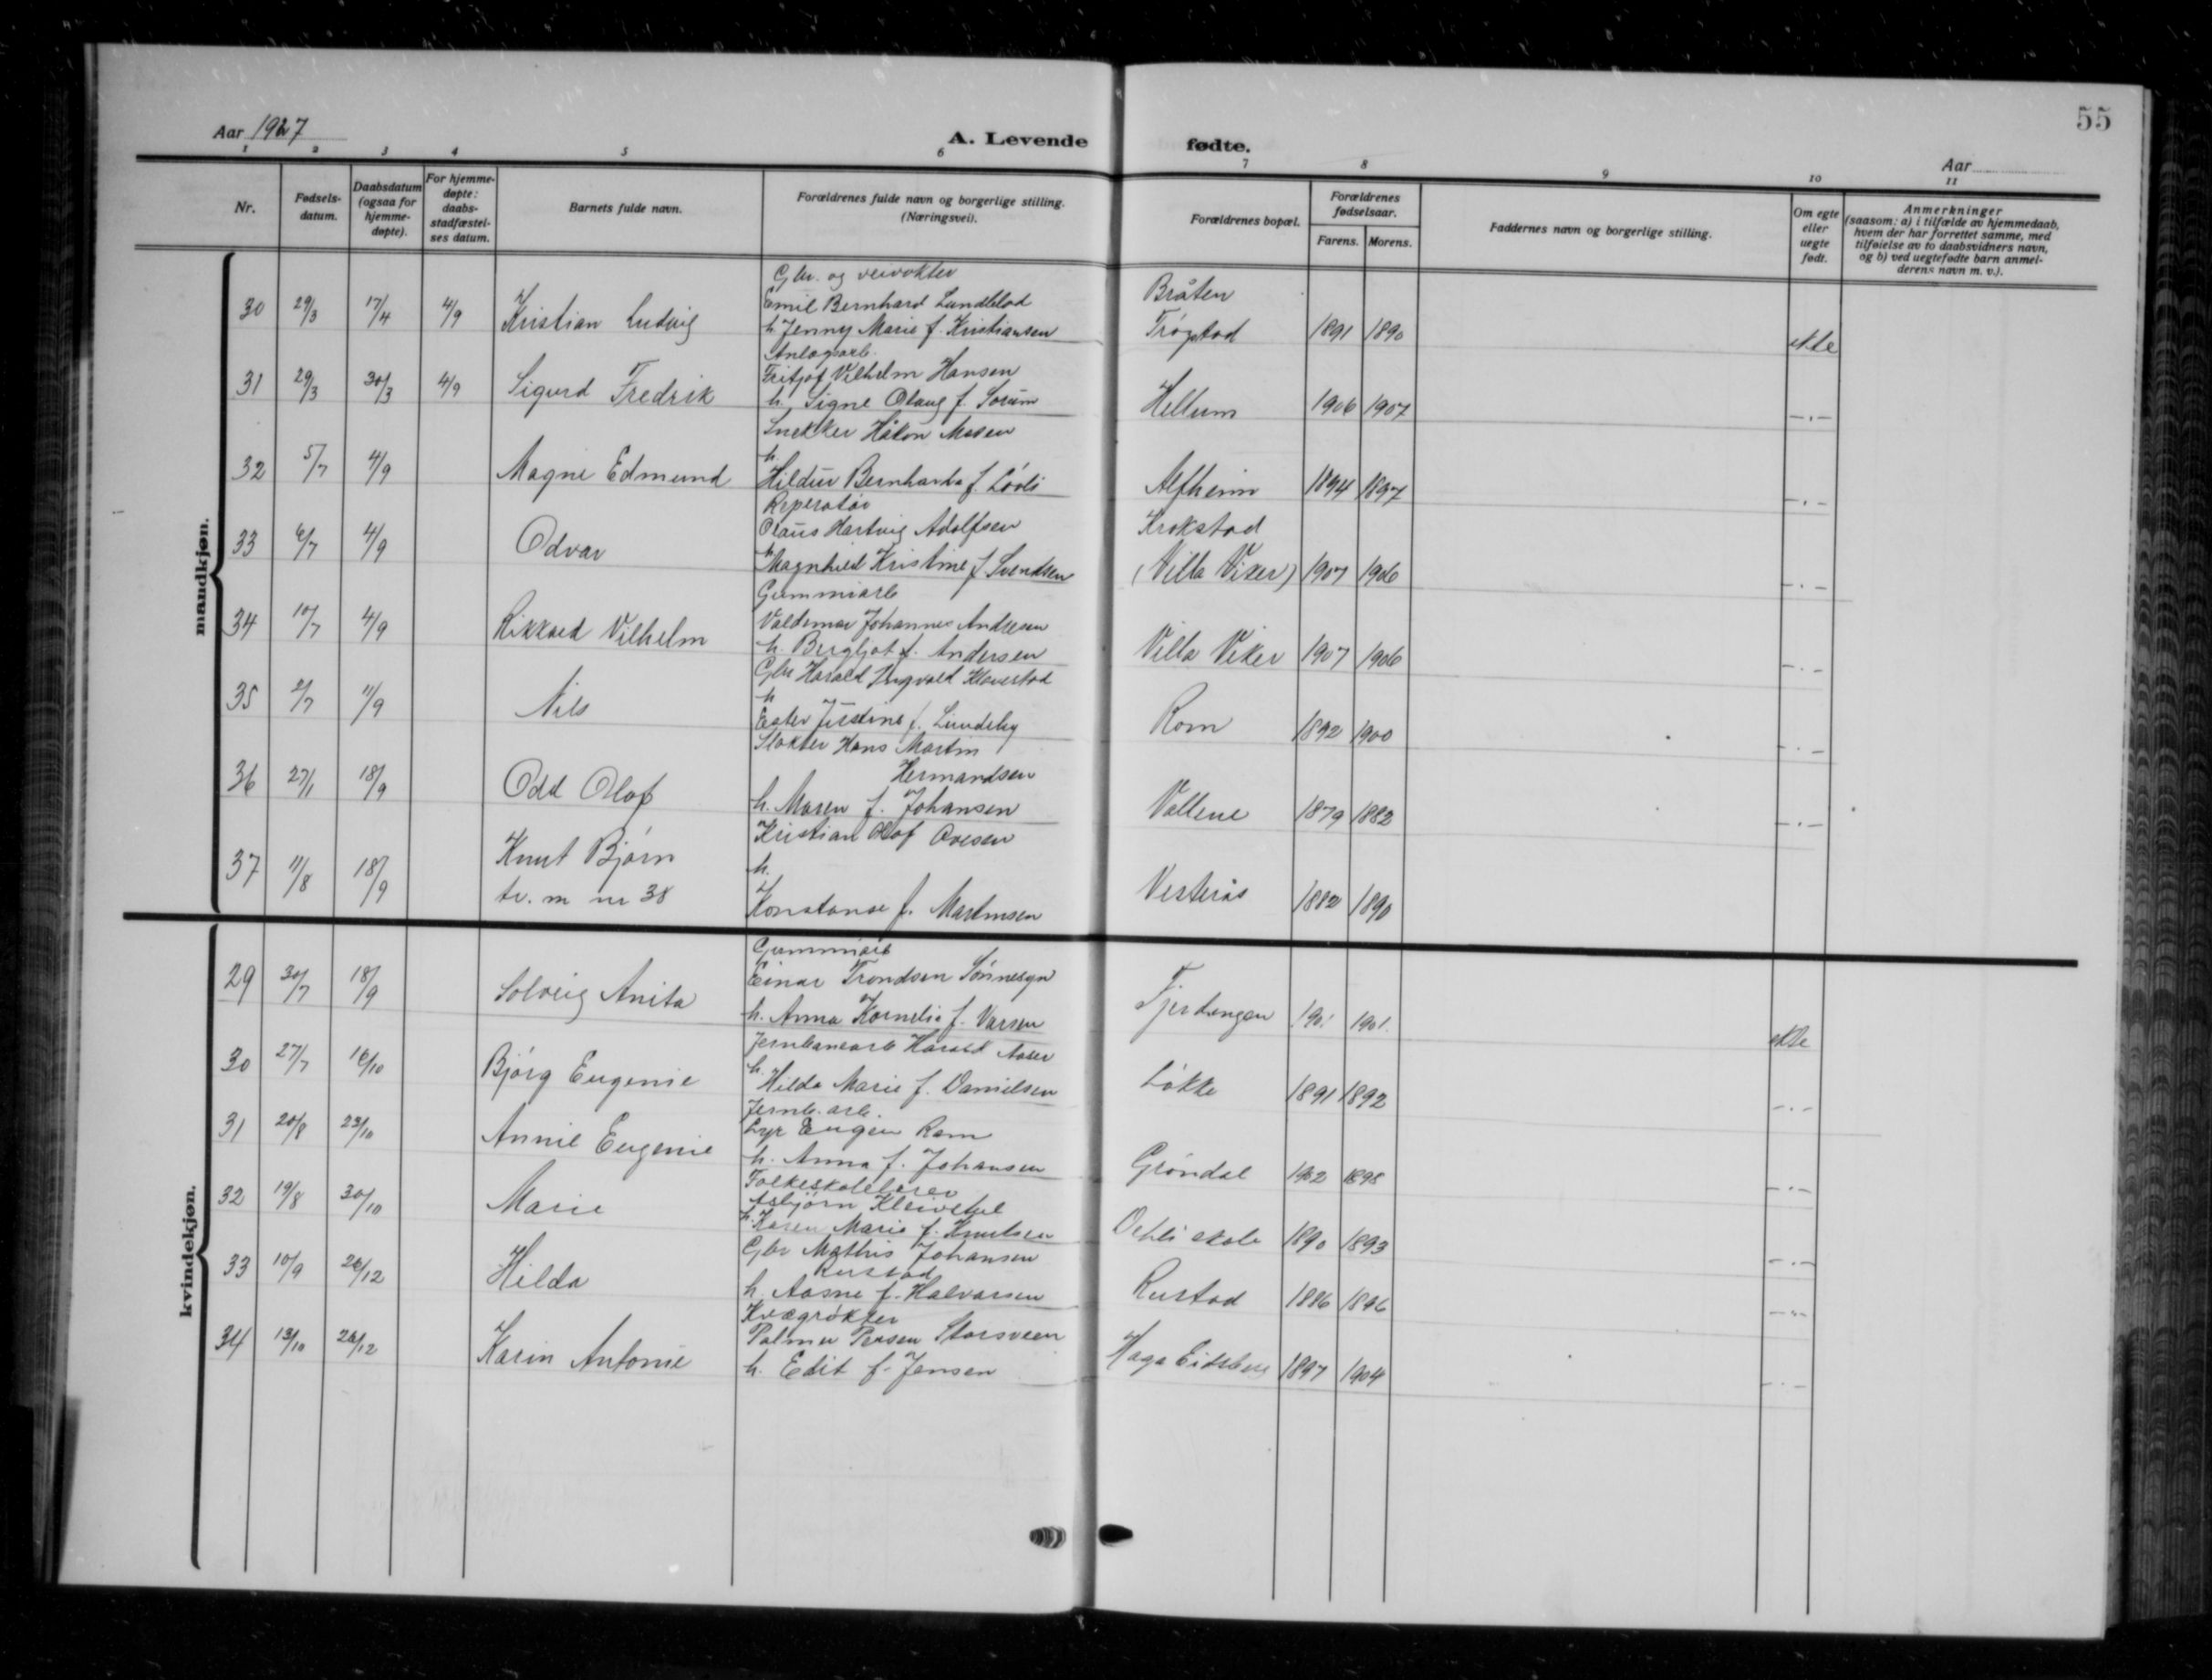 55
Aar 1927
A. Levende fødte.
Aar
1 2 3 4 5 6 7 8 9 10 11
Nr.
Fødsels-
datum.
Daabsdatum
(ogsaa for
hjemme-
døpte).
For hjemme-
døpte:
daabs-
stadfæstel-
ses datum.
Barnets fulde navn.
Forældrenes fulde navn og borgerlige stilling.
(Næringsvei).
Forældrenes bopæl.
Forældrenes
fødselsaar.
Farens. Morens.
Faddernes navn og borgerlige stilling.
Om egte
eller
uegte
født.
Anmerkninger
(saasom: a) i tilfælde av hjemmedaab,
hvem der har forrettet samme, med
tilføielse av to daabsvidners navn,
og b) ved uegtefødte barn anmel-
derens navn m. v.).
mandkjøn.
Gbr. og veivokter
Emil Bernhard Lundblad Bråten
30 29/3 17/4 4/9 Kristian Ludvig h. Jenny Marie f. Kristiansen Trøgstad 1891 1890 ekte
Anlegsarb.
Fritjof Vilhelm Hansen
31 29/3 30/3 4/9 Sigurd Fredrik h. Signe Olaug f. Sørum Hellum 1906 1907 -.-
Snekker Håkon Mosen
h.
32 5/7 4/9 Magne Edmund Hildur Bernharda f. Lövli Alfheim 1894 1897 -.-
Reperatör
Olaus Hartvig Adolfsen Krokstad
33 6/7 4/9 Odvar h. Magnhild Kristine f. Svendsen (Villa Viker) 1907 1906 -.-
Gummiarb
Valdemar Johannes Andresen
34 10/7 4/9 Rikkard Vilhelm h. Bergljot f. Andersen Villa Viker 1907 1906 -.-
Gbr Harald Ingvald Klavestad
h
35 2/7 11/9 Nils Ester Justine f. Lundeby Rom 1892 1900 -.-
Slakter Hans Martin
Hermandsen
36 27/1 18/9 Odd Olaf h. Maren f. Johansen Vallene 1879 1882 -.-
Kristian Olaf Ovesen
37 11/8 18/9 Knut Bjørn h.
tv. m nr 38 Konstanse f. Martinsen Vesterås 1882 1890
kvindekjøn.
Gummiarb
Einar Trondsen Sønnesyn
29 30/7 18/9 Solveig Anita h. Anna Kornelia f. Varsen Fjerdingen 1901 1901. ekte
Jernbanearb Harald Aaser
h.
30 27/7 16/10 Bjørg Eugenie Hilda Marie f. Danielsen Løkke 1891 1892 -.-
Jernb. arb.
Eugen Ram
31 20/8 23/10 Annie Eugenie h. Anna f. Johansen Grøndal 1902 1898 -.-
Folkeskolelærer
Asbjørn
32 19/8 30/10 Marie h. Karen Marie f. Knutsen skole 1890 1893 -.-
Gbr Mathis Johansen
Rustad
33 10/9 26/12 Hilda h. Aasne f. Halvorsen Rustad 1886 1896 -.-
Kvægrøkter
Palmer Persen Storsveen
34 13/10 26/12 Karin Antonie h. Edit f. Jensen Haga Eidsberg 1897 1904 -.-